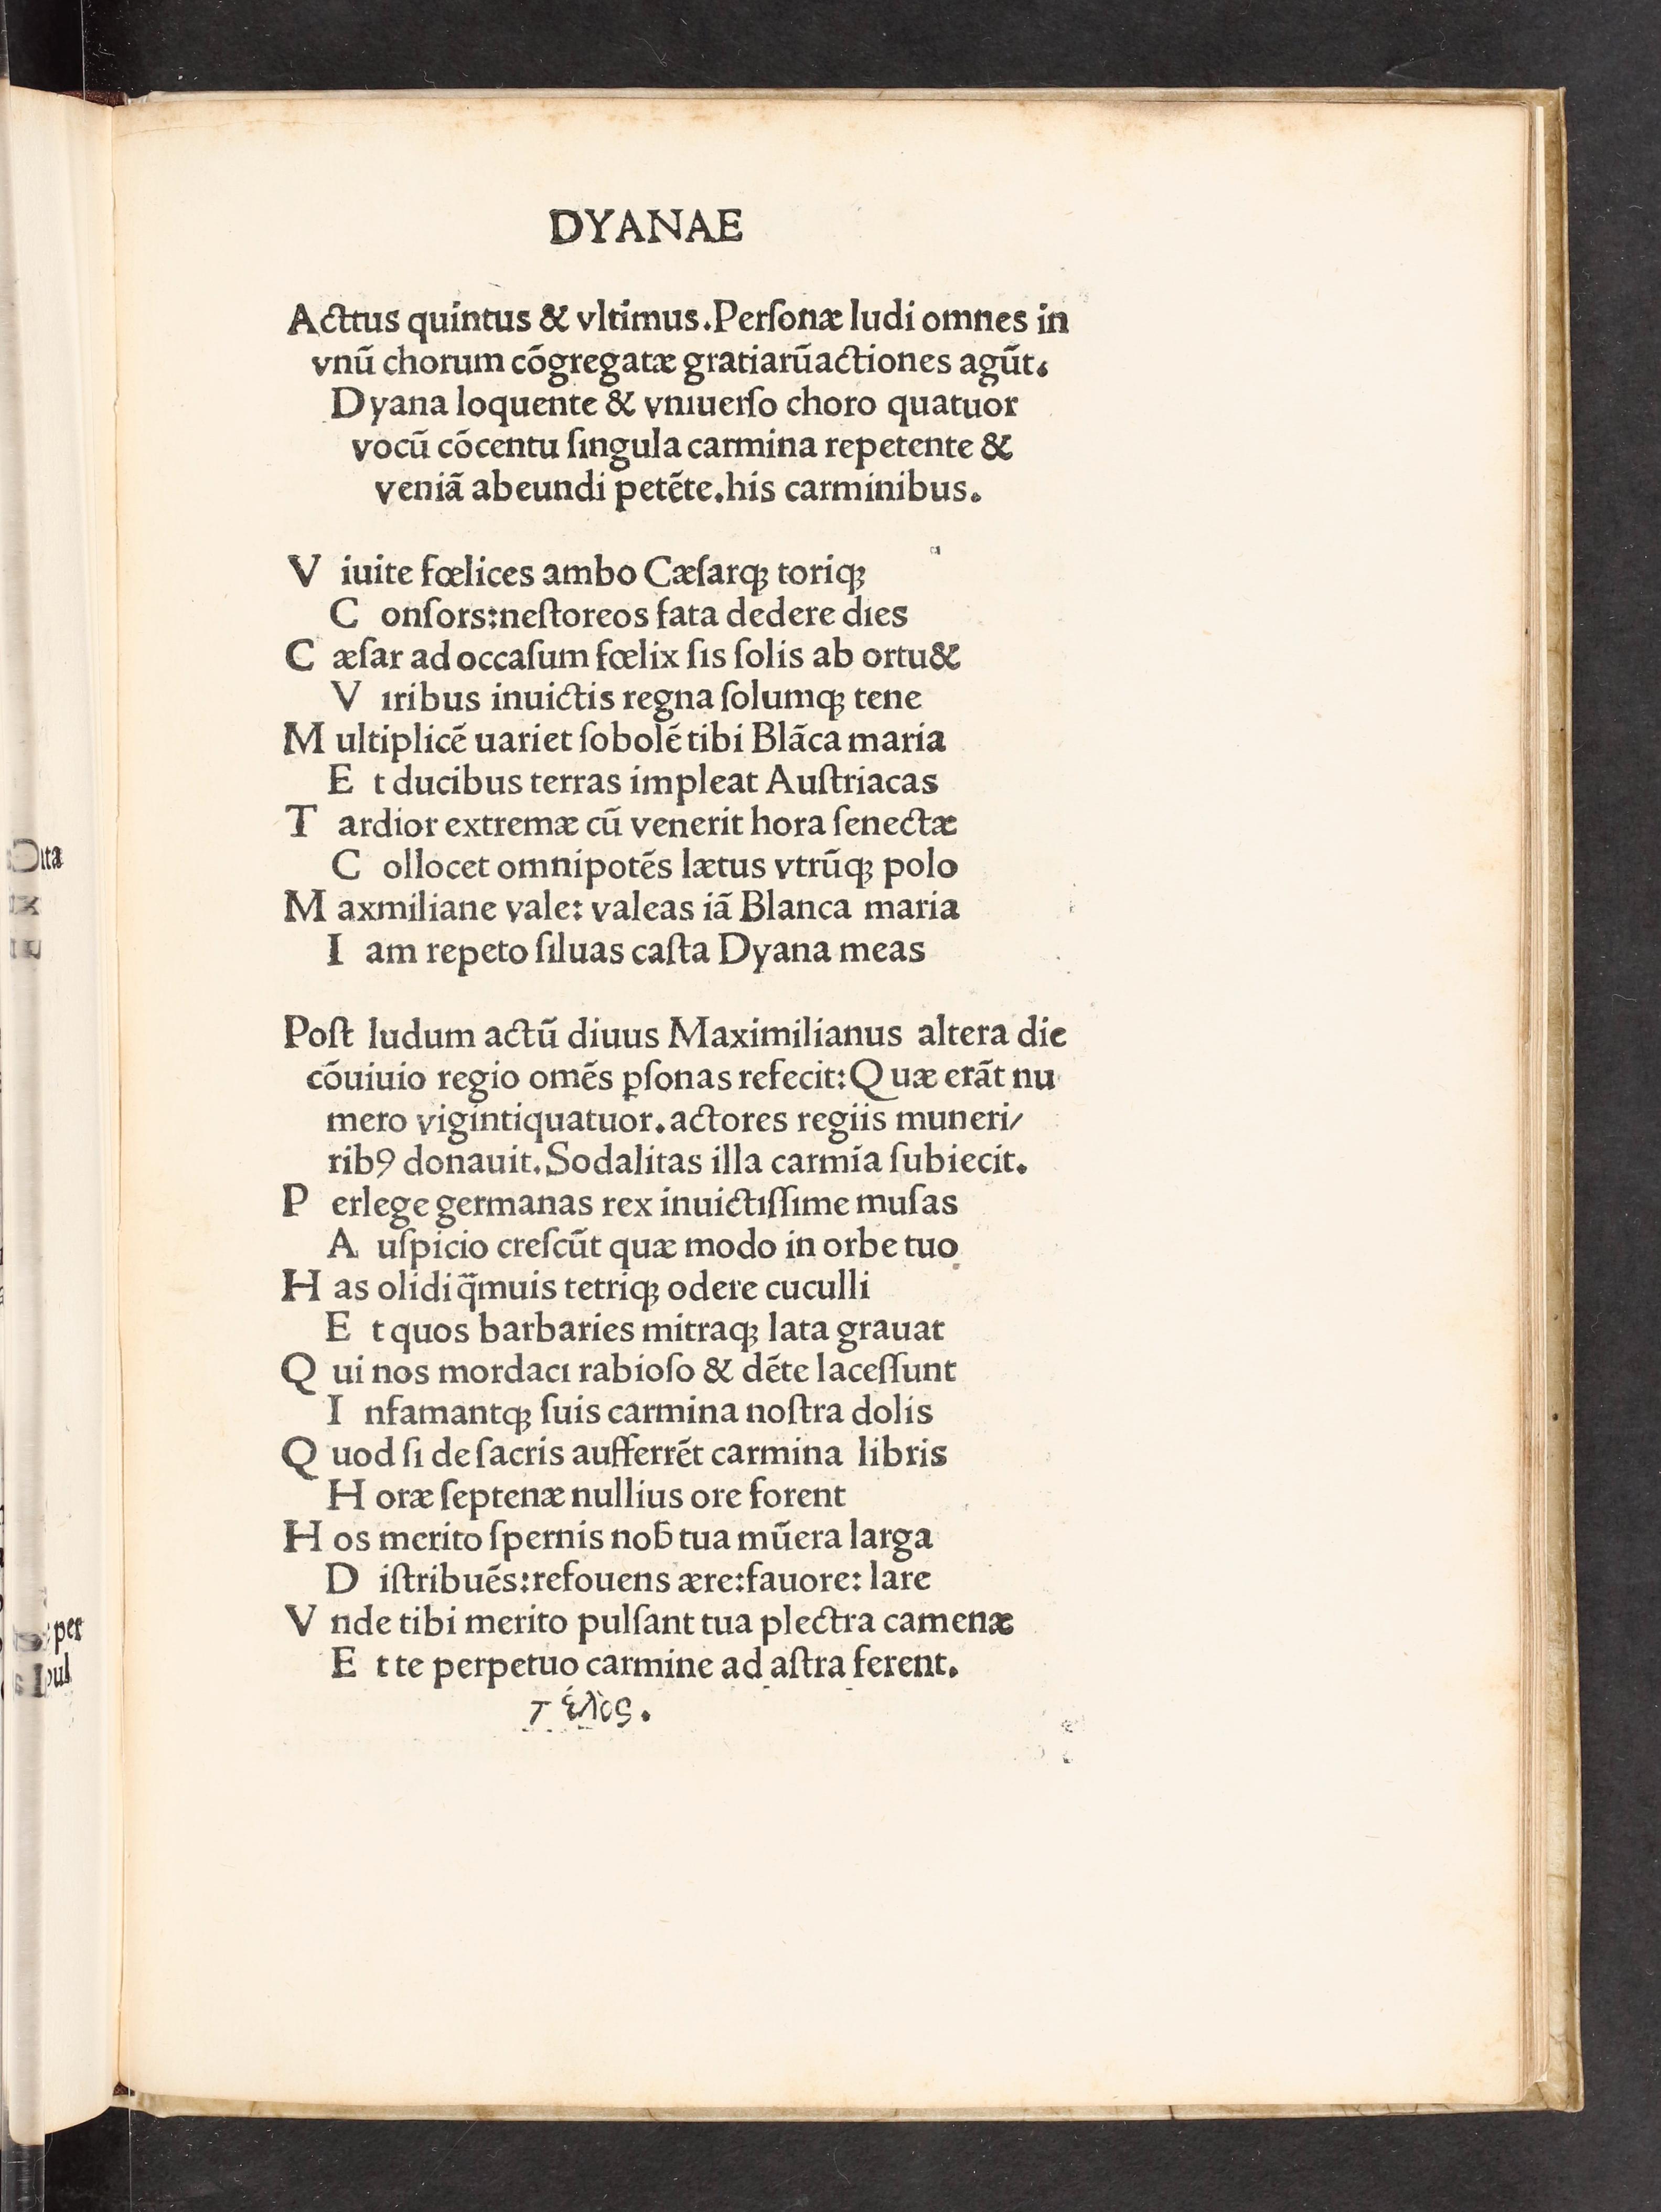 DYANAE
Acttus quintus & vltimus.Perſonæ ludi omnes in
vnū chorum cōgregatæ gratiarūactiones agūt.
Dyana loquente & vniuerſo choro quatuor
vocū cōcentu ſingula carmina repetente &
veniā abeundi petēte.his carminibus.
V iuite fœlices ambo Cæſarqꝫ toriqꝫ
C onſors:neſtoreos fata dedere dies
C æſar ad occaſum fœlix ſis ſolis ab ortu&
V iribus inuictis regna ſolumqꝫ tene
M ultiplicē uariet ſobolē tibi Blāca maria
E t ducibus terras impleat Auſtriacas
T ardior extremæ cū venerit hora ſenectæ
C ollocet omnipotēs lætus vtrūqꝫ polo
M axmiliane vale: valeas iā Blanca maria
I am repeto ſiluas caſta Dyana meas
Poſt ludum actū diuus Maximilianus altera die
cōuiuio regio omēs ꝑſonas refecit:Quæ erāt nu
mero vigintiquatuor.actores regiis muneri/
ribꝰ donauit.Sodalitas illa carmīa ſubiecit.
P erlege germanas rex inuictiſſime muſas
A uſpicio creſcūt quæ modo in orbe tuo
H as olidi q̄muis tetriqꝫ odere cuculli
E t quos barbaries mitraqꝫ lata grauat
Q ui nos mordaci rabioſo & dēte laceſſunt
I nfamantqꝫ ſuis carmina noſtra dolis
Q uod ſi de ſacris aufferrēt carmina libris
H oræ ſeptenæ nullius ore forent
H os merito ſpernis nob̄ tua mūera larga
D iſtribuēs:refouens ære:fauore: lare
V nde tibi merito pulſant tua plectra camenæ
E t te perpetuo carmine ad aſtra ferent.
τέλος.